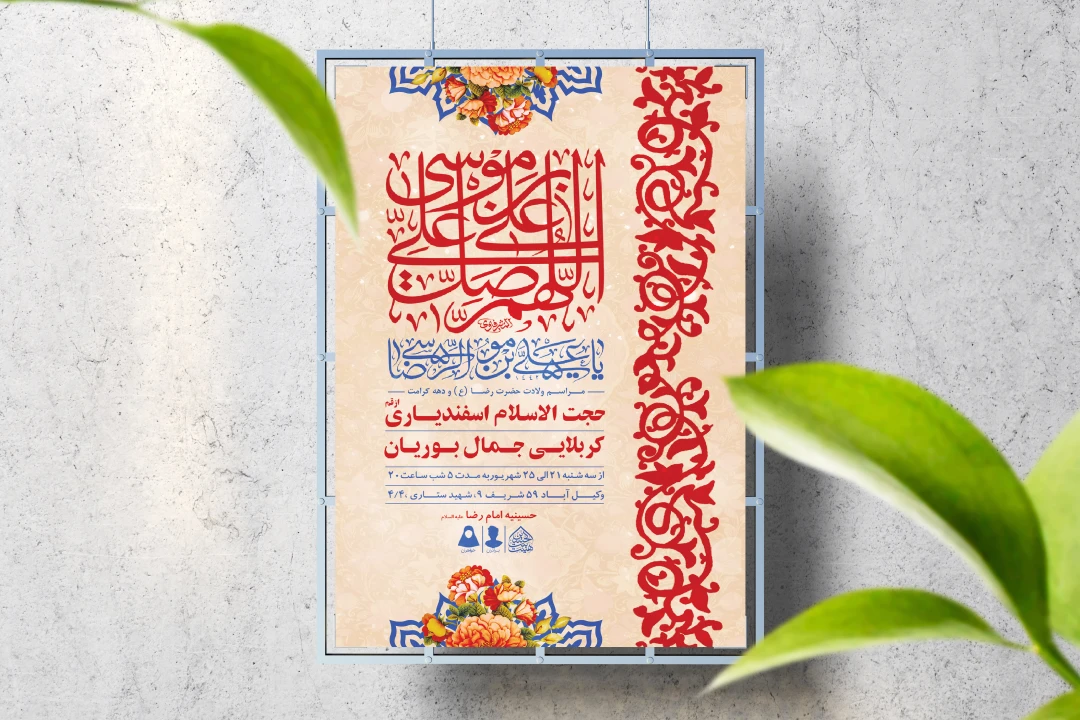 اللهم صل علی علی بن موسی الرضا
یا علی بن موسی الرضا
مراسم ولادت حضرت رضا (ع) و دهه کرامت
حجت الاسلام اسفندیاری از قم
کربلایی جمال بوریان
از سه شنبه ۲۱ الی ۲۵ شهریور به مدت ۵ شب ساعت ۲۰
وکیل آباد ۵۹ شریف ۹، شهید ستاری ۴/۴۰
حسینیه امام رضا علیه السلام
برادران
خواهران